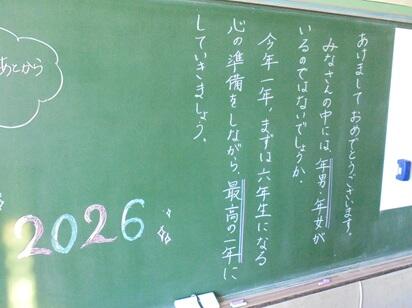 あけまして おめでとうございます。
みなさんの中には、年男・年女が
いるのではないでしょうか。
今年一年、まずは六年生になる
心の準備をしながら、最高の一年に
していきましょう。
あとから
2026